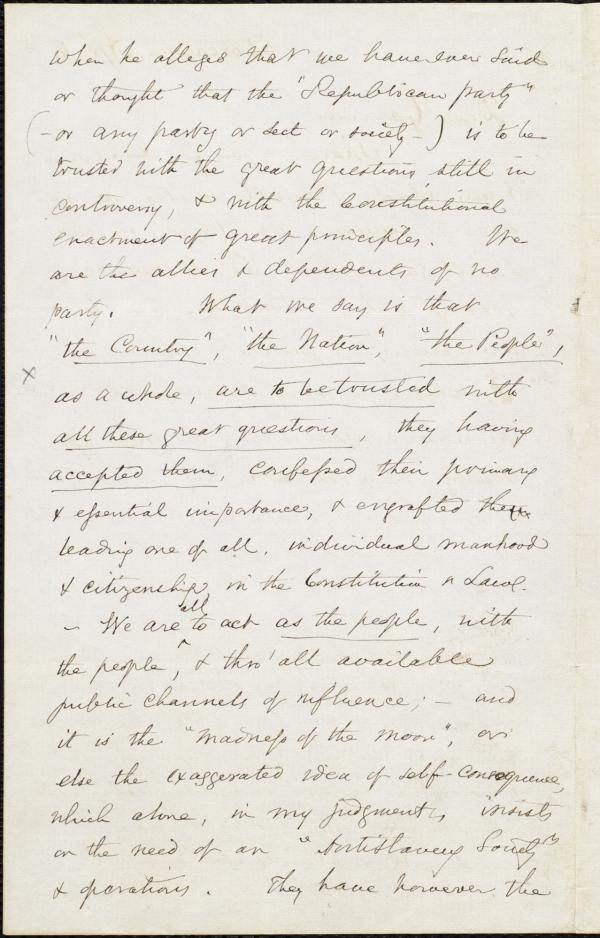 when he alleges that we have ever said
or thought that the "Republican party"
(- or any party or sect or society -) is to be
trusted with the great questions still in
controversy, & with the Constitutional
enactment of great principles. We
are the allies & dependents of no
party. What we say is that
"the Country", "the Nation", "the People",
x
as a whole, are to be trusted with
all these great questions, they having
accepted them, confessed their primary
& essential importance, & engrafted the
leading one of all, individual manhood
& citizenship, in the Constitution & Laws.
- We are all to act as the people, with
the people, & thro' all available
public channels of influence; - and
it is the "madness of the moon", or
else the exaggerated idea of self-consequence,
which alone, in my judgment, insists
on the need of an "Antislavery Society"
& operations. They have however the